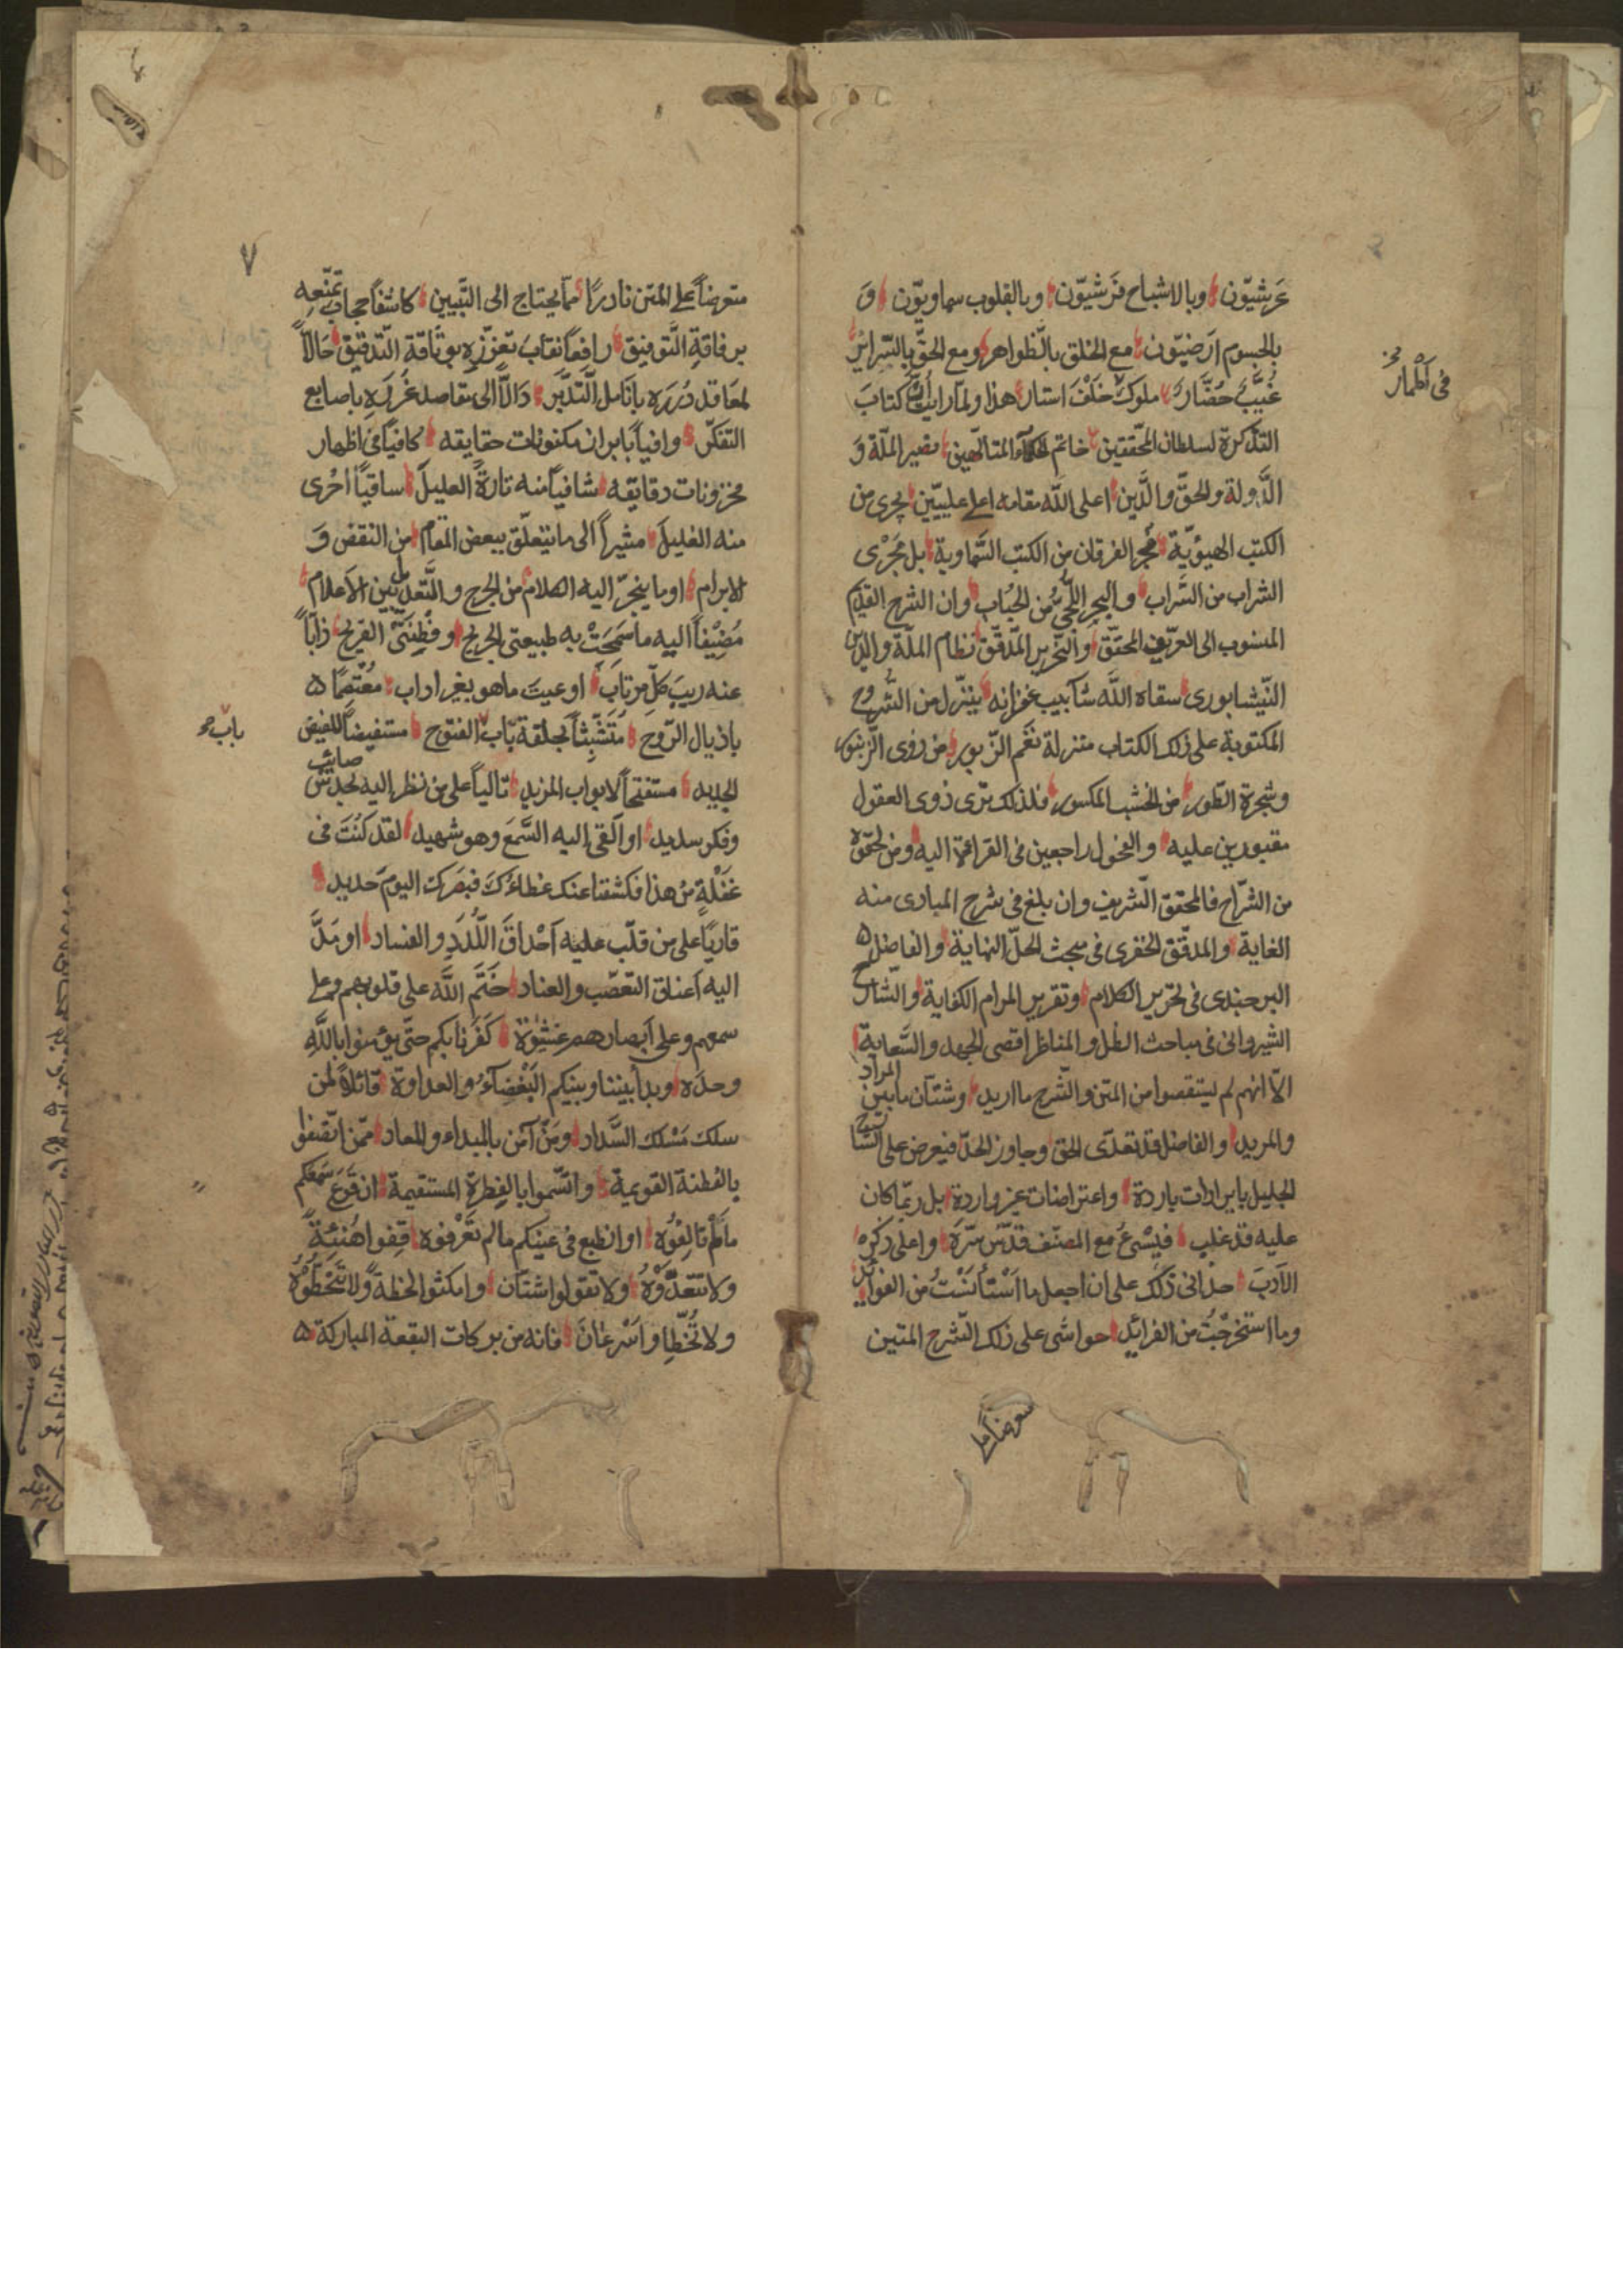 عَرشيّون وبالاشباح فَرشيّون وبالقلوب سماويّون وَ
بالجسوم ارَضيّون مع الخلق بالظواهر ومع الحقّ بالسّرائر
غُيَّبٌ حُضَّارٌ ملوكٌ خَلْفَ استار هذا ولمّا رايتُ انّ كتابَ
التذكرة لسلطان المحققين خاتم الحكمآء المتالّهين نصير الملّة وَ
الدَّولة والحقّ والدَّين اعلى الله مقامه اعلى علييّن يجرى من
الكتب الهيوَيّة مجرى الفرقان من الكتب السَّماوية بل مَجَرْى
الشراب من السَّراب والبحر اللُّجّىّ من الحُباب وان الشرح القديم
المنسوب الى العرّيف المحقّق والنّحرير المدّقّق نظام الملّة والدّين
النّيشابورى سقاه اللَّه شآبيب غفرانه ينزّل من الشُّروح
المكتوبة على ذلك الكتاب منزلة نَغَم الزّبور من دوى الزّنبور
وشجرة الطّور من الخشب المكسور فلذلك ترى ذوى العقول
مقبورين عليه والفحول راجعين فى القراءة اليه ومن لحقوه
من الشرّاح فالمحقق الشريف وان بلغ فى شرح المبادى منه
الغاية والمدقّق الخفرى فى مبحث الحلّ النهاية والفاضل
البرجندى فى تحرير الكلام وتقرير المرام الكفاية والشّارح
الشيروانى فى مباحث الظل والمناظر اقصى الجهد والسَّعاية
الاّ انهم لم يستقصوا من المتن والشّرح ما اريد وشتآن ما بين المراد
والمريد والفاضل قد تعدّى الحق وجاوز الحدّ فيعرض على الشّارح
الجليل بايرادات باردة واعتراضات غير واردة بل ربّما كان
عليه قد غلب فيُسْئُ مع المصنّف قدّس سّره واعلى ذكره
الاَدبَ حدانى ذلك على ان اجعل ما اسْتَأنَسْتُ من الفوائد
وما استخرجْتُ من الفرائد حواشى على ذلك الشرح المتين
فى اَطْمار
متعرضاً على
٧
متعرضاً على المتن نادرًا ممّا يحتاج الى التَّبيين كاشفاً حجاب تمنّعه
برفاقةِ التَّوفيق رافعاً نقابَ تعزّزه بوثاقة التّدقيق حَالاًّ
لمعَاقد دُرَره بانامل التّدبّر دَالاًّ الى مقاصد غُرَره باصابع
التفكّر وافياً بابراز مكنونات حقايقه كافياً فى اظهار
مخزونات دقايقه شافياً منه تارةً العليلَ ساقياً اُخْرى
منه الغليلَ مشيراً الى ما يتعلّق ببعض المقام من النقض وَ
الابرام او ما ينجرّ اليه الكلام من الجرح والتَّعديل بين الاَعلام
مُضِيْفاً اليه ما سَمَحَتْ به طبيعتى الجريح وفِطْنَتى القريح ذابّاً
عنه ريبَ كلّ مرتابَ او عيبَ ما هو بغير اراب معْتَصِمًا
باذيال الرّوح مُتَشَبِّثاً بحلقة باب الفتوح مستفيضاً للفيض
الجديد مستفتحاً لابواب المزيد تالياً على من نظر اليه بحدس صائب
وفكر سديد او القى اليه السَّمعَ وهو شهيد لقد كنُتَ فى
غَفْلَةٍ مِنْ هذا فكشفنا عنك غطاءَك فبصَرك اليومَ حديد
قارياً على من قلّب عليه اَحْداقَ اللَّدَدِ والفساد او مَدَّ
اليه اَعناق التعصّب والعناد خَتَم اللَّه على قلوبهم وعلى
سمعهم وعلى اَبصارهم غِشٰوَةٌ كَفَرْنا بكم حتّى تؤمنوا باللّٰهِ
وحدَه وبدا بيننا وبينكم البَغْضآءُ والعداوة قائلاً لمن
سلك مَسْلك السَّداد ومَنْ آمَن بالمبداء والمعاد ممّن اتّصفوا
بالفطنة القويمة واتّسموا بالفِطرة المستقيمة ان قَرَعَ سَمعكم
ما لم تالفِوُه او انطبع فى عينكم ما لم تَعْرفوه قِفوا هُنَيْئةً
ولا تتعدَّوْهُ ولا تقولوا شتّآن وامكثوا لحظةً ولا تتَخَطَّوْهُ
ولا تُخَطِّاوا سَرْعانَ فانه من بركات البقعة المباركة
باب